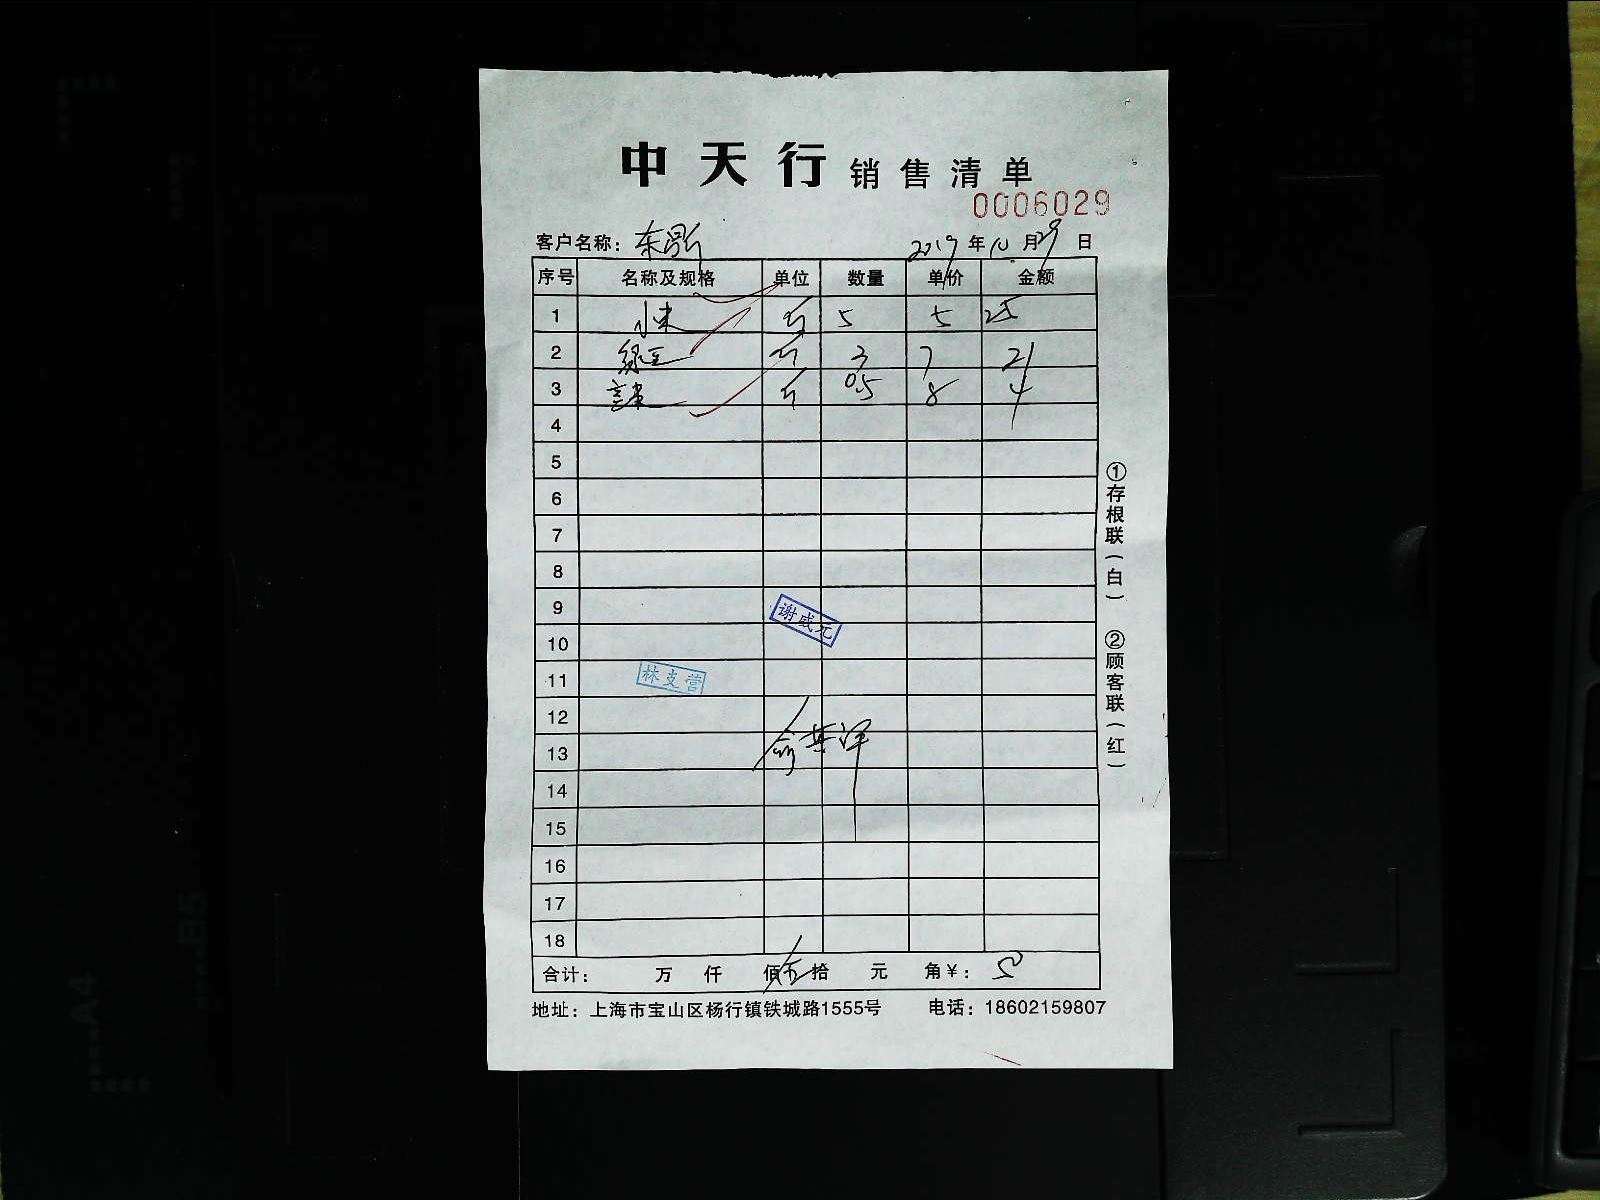 中天行 销售清单
0006029
客户名称： 2019 年 10 月 29 日
序号 名称及规格 单位 数量 单价 金额
1 小米 斤 5 5 25
2 绿豆 斤 3 7 21
3 斤 0.5 8 4
4
5
6
7
8
9
10
11
12
13
14
15
16
17
18
谢成元
林支营
合计： 万 仟 佰 伍 拾 元 角 ￥： 50
地址：上海市宝山区杨行镇铁城路1555号 电话：18602159807
①存根联（白） ②顾客联（红）
A4
B5